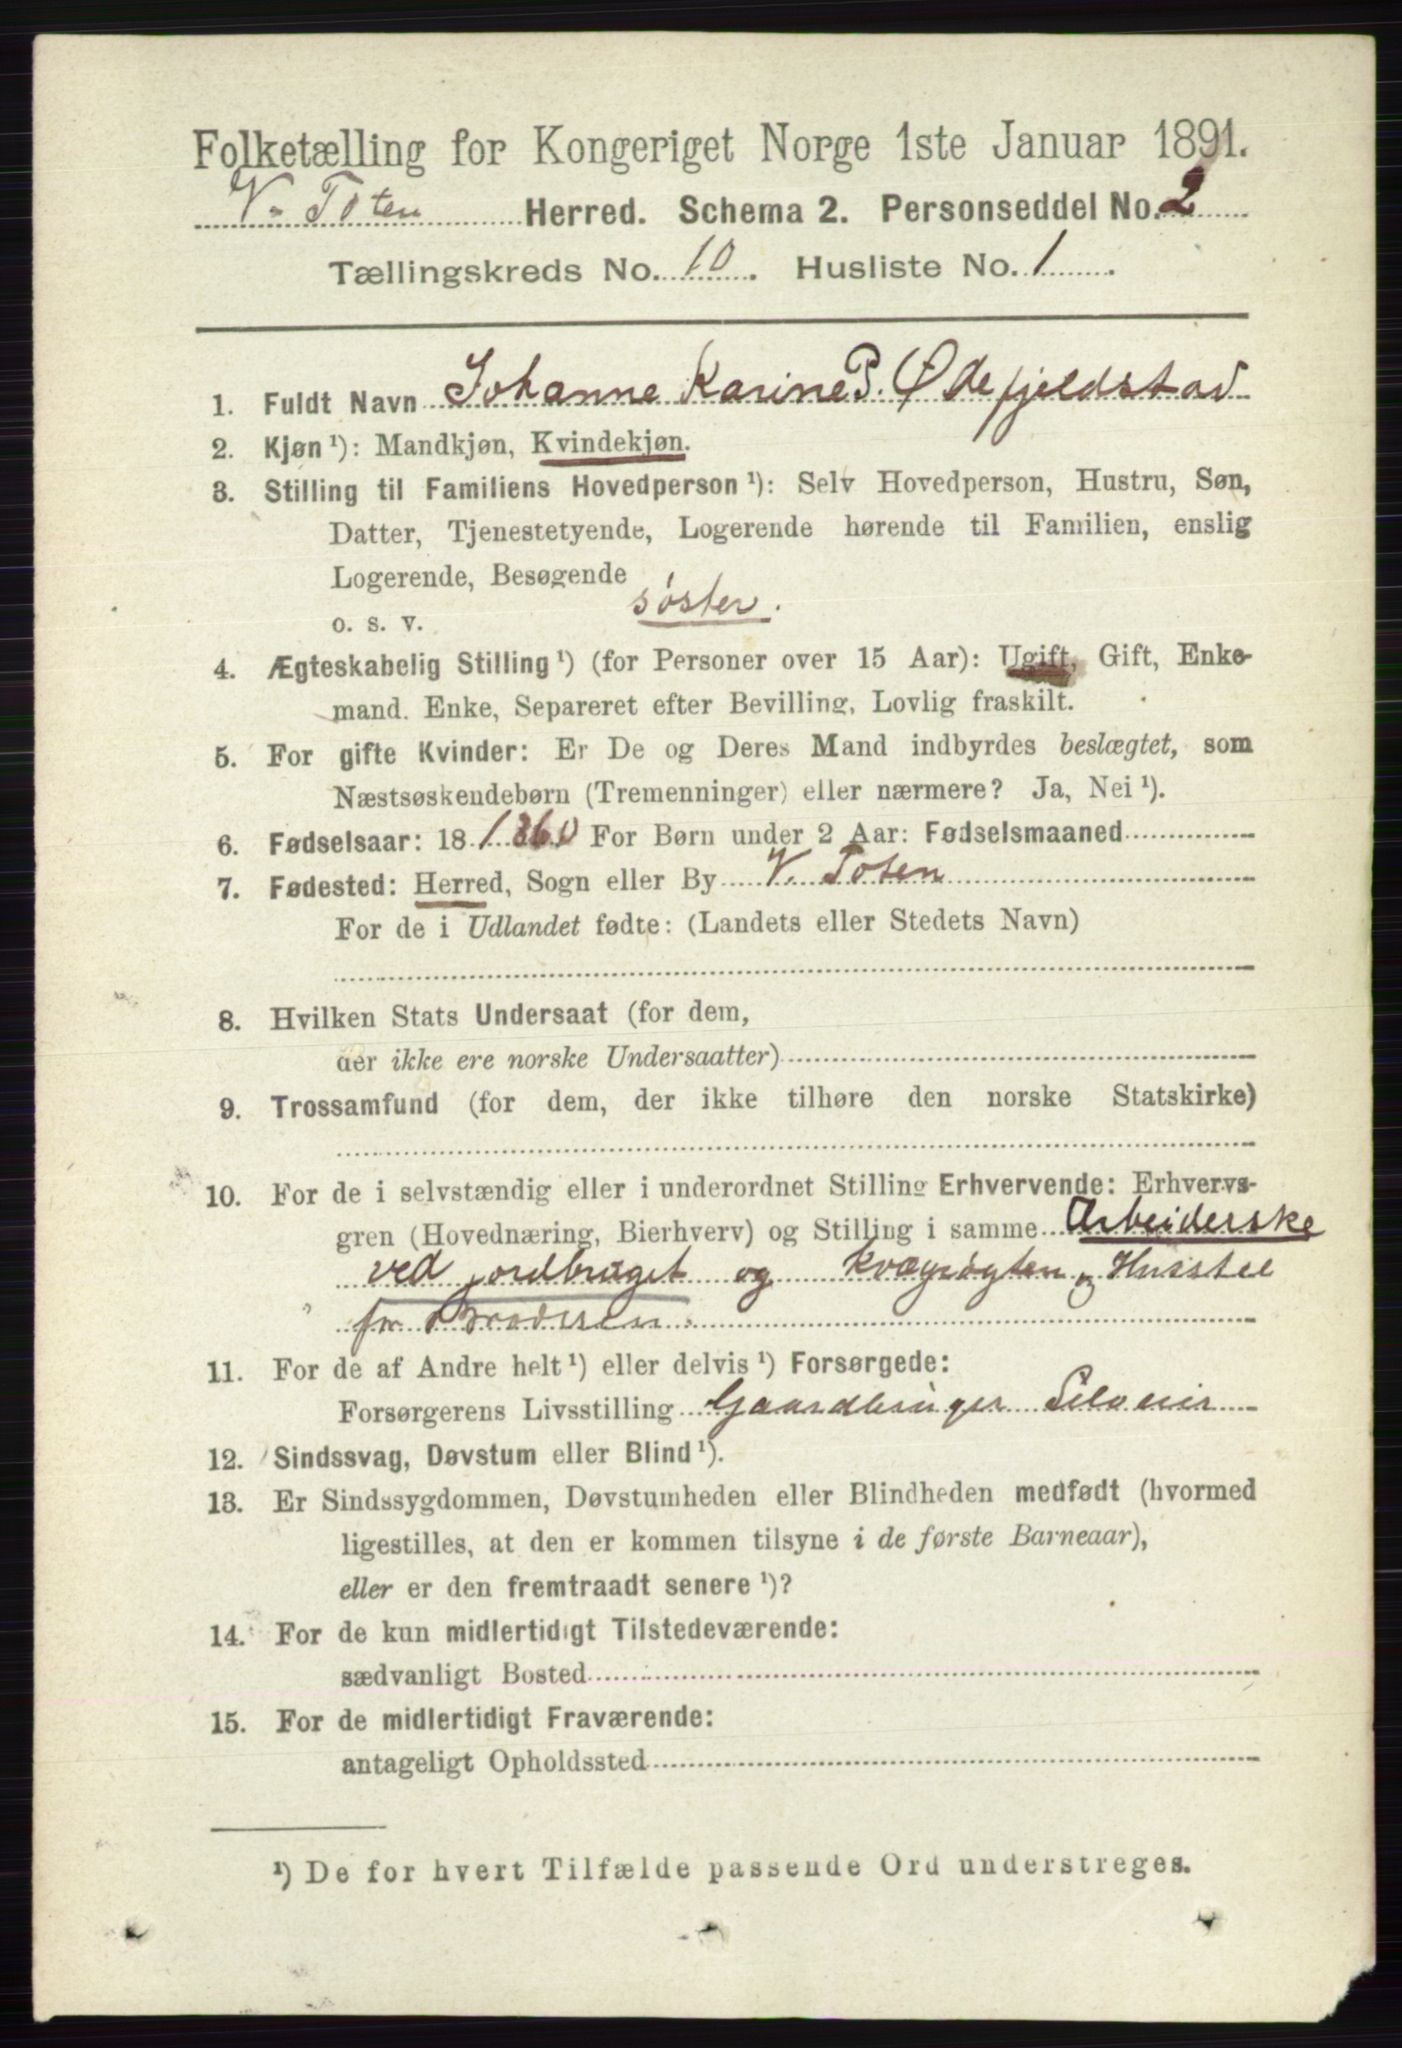 Folketælling for Kongeriget Norge 1ste Januar 1891.
V. Toten Herred. Schema 2. Personseddel No. 2
Tællingskreds No. 10. Husliste No. 1
1. Fuldt Navn Johanne Karine P. Ødefjeldstad
2. Kjøn ¹): Mandkjøn, Kvindekjøn.
3. Stilling til Familiens Hovedperson ¹): Selv Hovedperson, Hustru, Søn,
Datter, Tjenestetyende, Logerende hørende til Familien, enslig
Logerende, Besøgende
o. s. v. søster.
4. Ægteskabelig Stilling ¹) (for Personer over 15 Aar): Ugift, Gift, Enke-
mand. Enke, Separeret efter Bevilling, Lovlig fraskilt.
5. For gifte Kvinder: Er De og Deres Mand indbyrdes beslægtet, som
Næstsøskendebørn (Tremenninger) eller nærmere? Ja, Nei ¹).
6. Fødselsaar: 18 1860 For Børn under 2 Aar: Fødselsmaaned
7. Fødested: Herred, Sogn eller By V. Toten
For de i Udlandet fødte: (Landets eller Stedets Navn)
8. Hvilken Stats Undersaat (for dem,
der ikke ere norske Undersaatter)
9. Trossamfund (for dem, der ikke tilhøre den norske Statskirke)
10. For de i selvstændig eller i underordnet Stilling Erhvervende: Erhvervs-
gren (Hovednæring, Bierhverv) og Stilling i samme Arbeiderske
ved jordbruget og kvægrøgten, Husstel
for Broderen.
11. For de af Andre helt ¹) eller delvis ¹) Forsørgede:
Forsørgerens Livsstilling Gaardbruger Selveier
12. Sindssvag, Døvstum eller Blind ¹).
13. Er Sindssygdommen, Døvstumheden eller Blindheden medfødt (hvormed
ligestilles, at den er kommen tilsyne i de første Barneaar),
eller er den fremtraadt senere ¹)?
14. For de kun midlertidigt Tilstedeværende:
sædvanligt Bosted
15. For de midlertidigt Fraværende:
antageligt Opholdssted
¹) De for hvert Tilfælde passende Ord understreges.